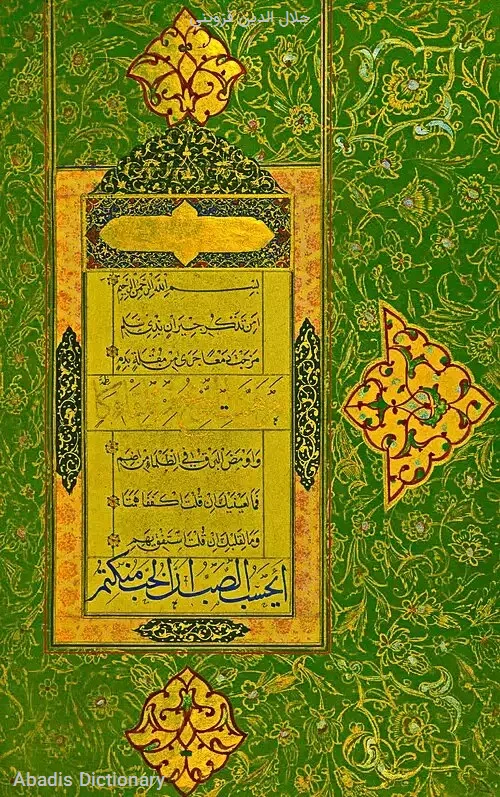 جلال الدین قزوینی
بسم الله الرحمن الرحيم
امن تذكر جيران بذي سلم
مزجت دمعا جرى من مقلة بدم
واومض البرق في الظلماء من اضم
فما لعينيك ان قلت اكففا همتا
وما لقلبك ان قلت استفق يهم
ايحسب الصب ان الحب منكتم
Abadis Dictionary